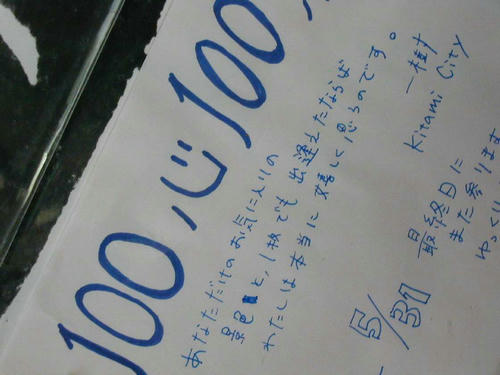 100 心 100
あなただけのお気に入りの
景色と、1枚でも出逢えたならば
わたしは本当に嬉しく思うのです。
一樹
Kitami City
最終日に
また参ります
ゆっくり
5/31